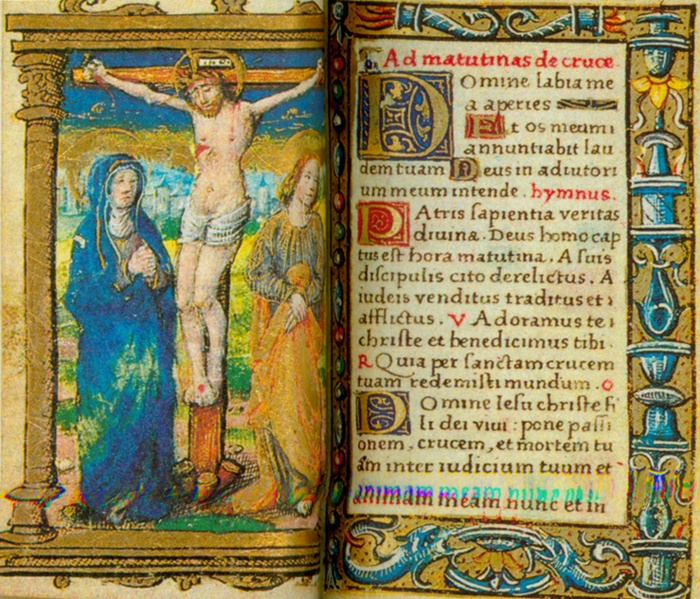 INRI
Ad matutinas de cruce.
Domine labia me
a aperies
Et os meum
annuntiabit lau
dem tuam Deus in adiutori
um meum intende. hymnus.
Patris sapientia veritas
divina. Deus homo cap
tus est hora matutina. A suis
discipulis cito derelictus. A
iudeis venditus traditus et
afflictus. V Adoramus te
christe et benedicimus tibi.
R Quia per sanctam crucem
tuam redemisti mundum. O
Domine Iesu christe fi
li dei vivi: pone passi
onem, crucem, et mortem tu
am inter iudicium tuum et
animam meam nunc et in